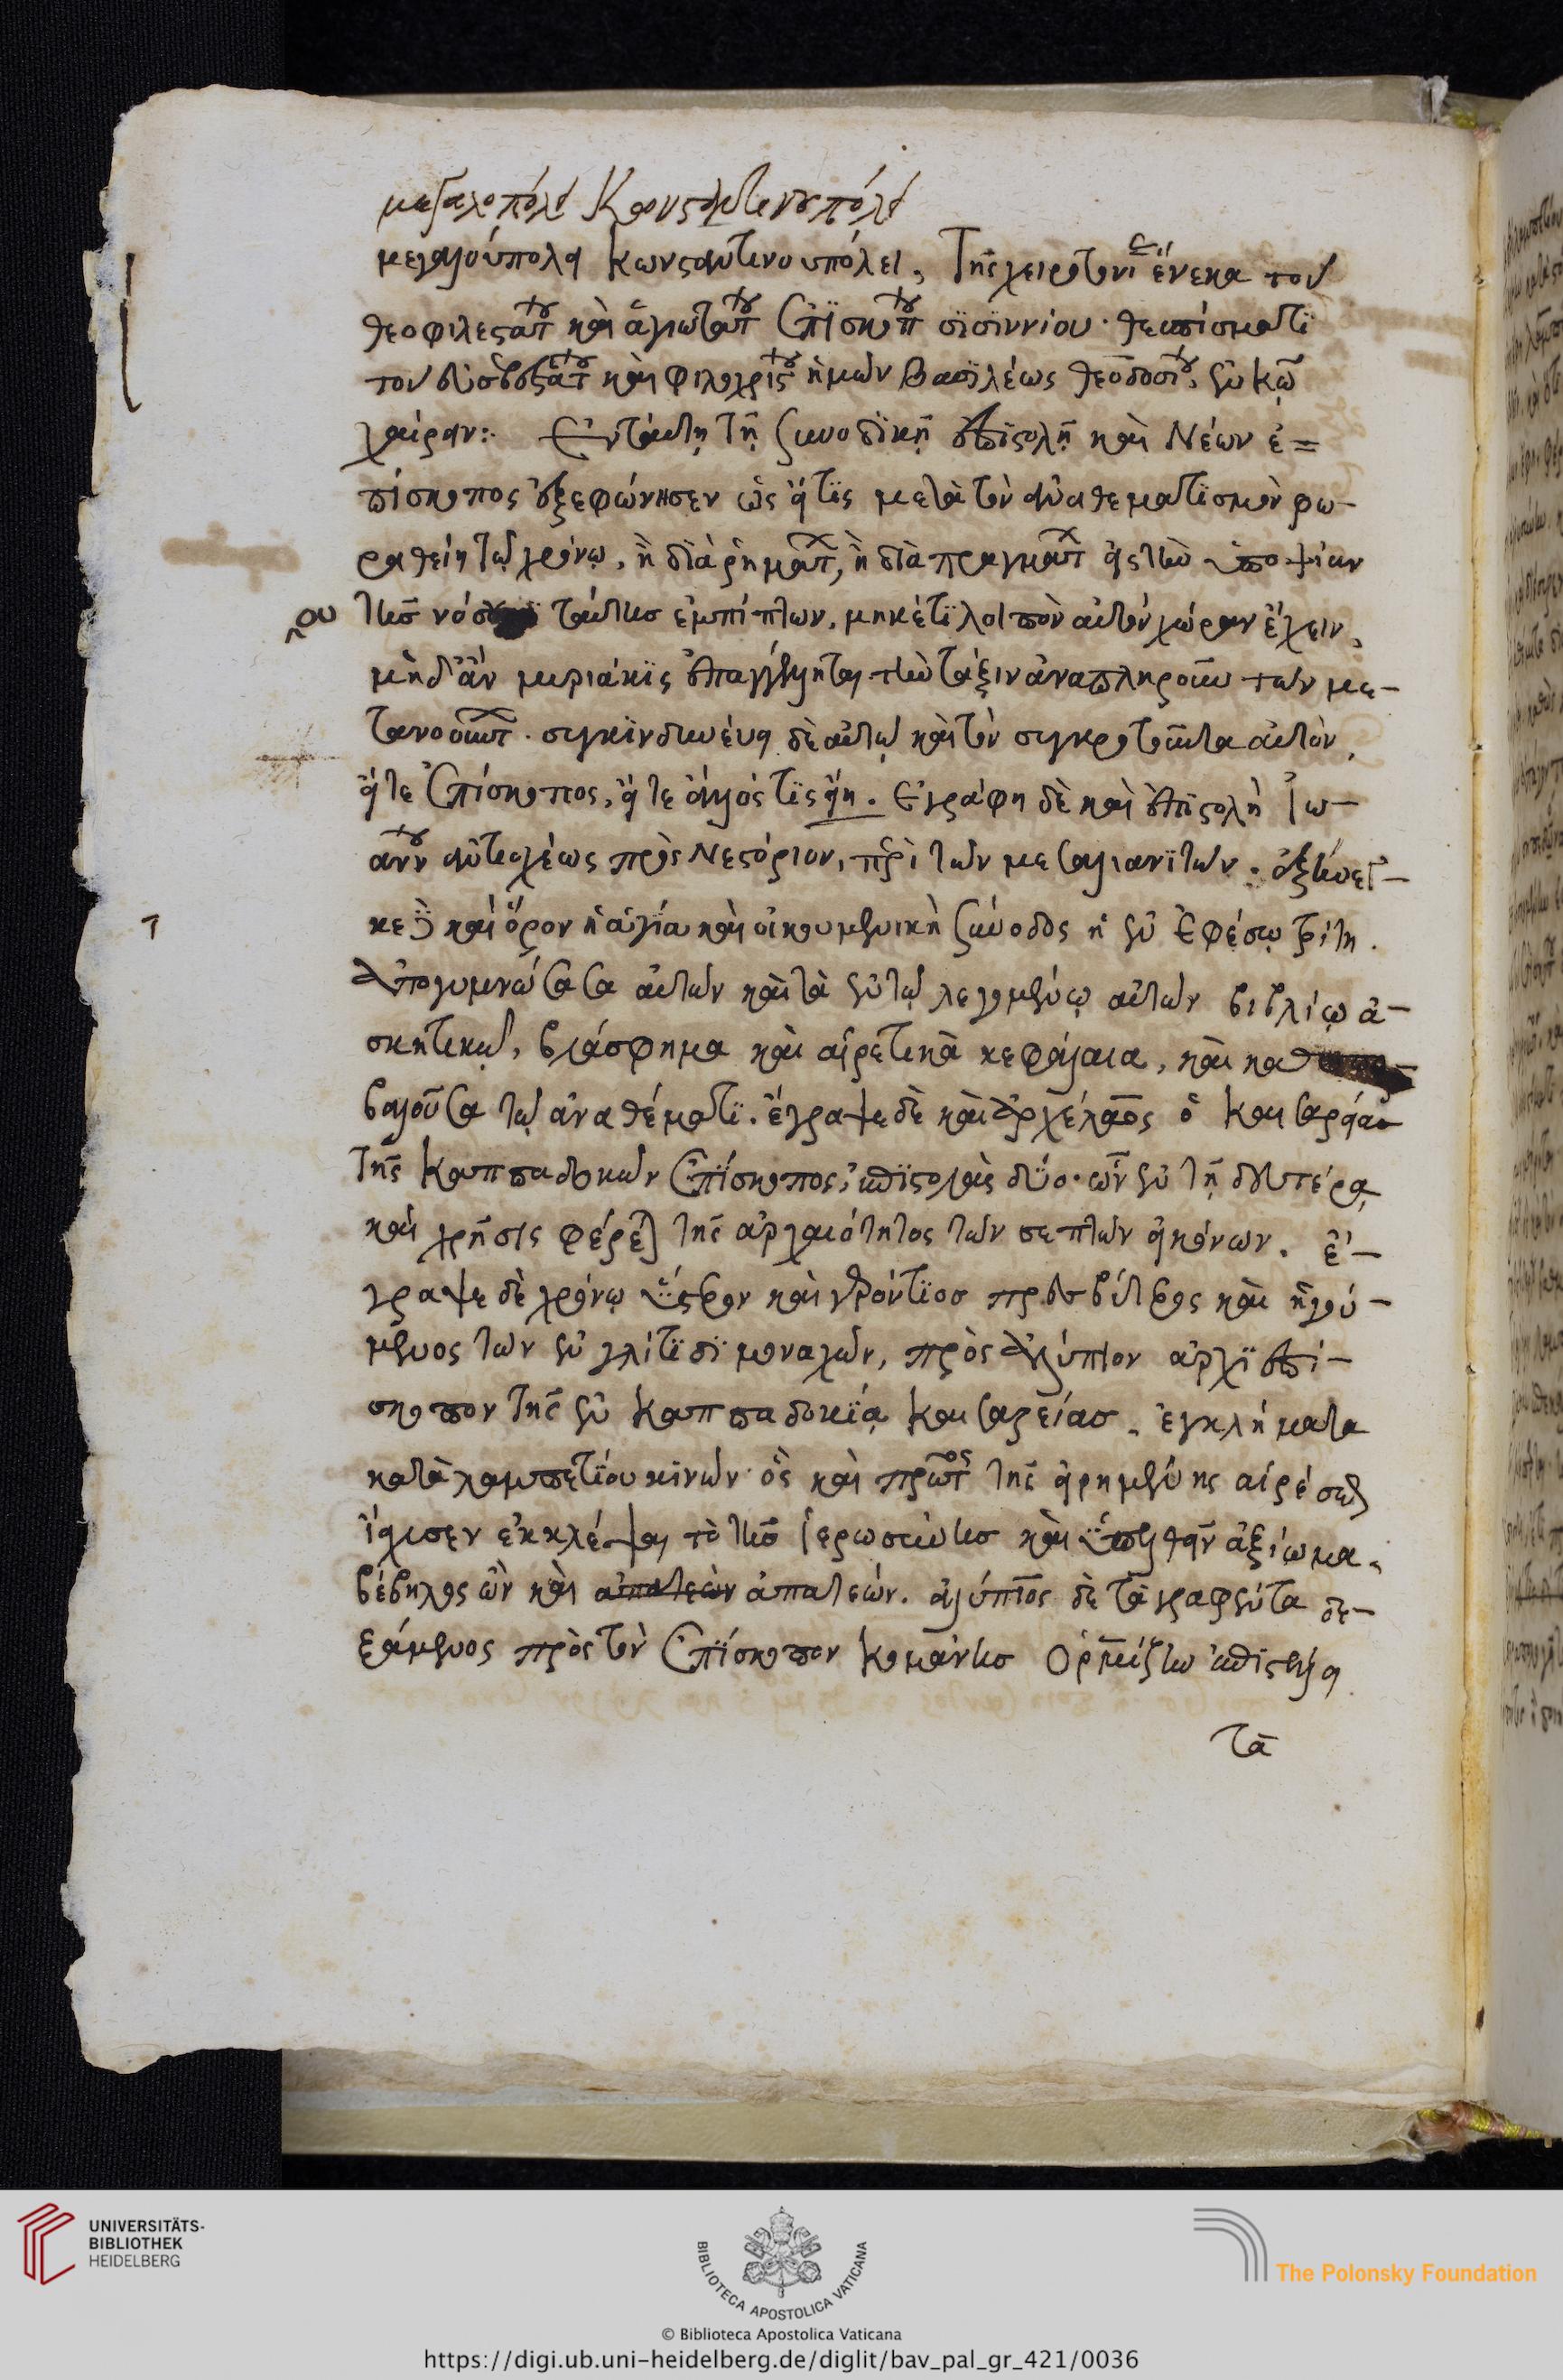 μεγαλοπόλει Κωνσταντινουπόλει
μεγαλουπόλει Κωνσταντινουπόλει, τῆς χειροτονίας ἕνεκα τοῦ
θεοφιλεστάτου καὶ ἁγιωτάτου ἐπισκόπου σισιννίου· θεσπίσματι
τοῦ εὐσεβεστάτου καὶ φιλοχρίστου ἡμῶν βασιλέως θεοδοσίου, ἐν κῶ
χαίρειν: Ἐν ταύτῃ τῇ συνοδικῇ ἐπιστολῇ καὶ Νέων ἐ=
πίσκοπος ἐξεφώνησεν ὡς εἴ τις μετὰ τὸν ἀναθεματισμὸν φω-
ραθείη τῷ χρόνῳ, ἢ διὰ ῥημάτων, ἢ διὰ πραγμάτων εἰς τὴν ὑποψίαν
τῆς νόσου ταύτης ἐμπίπτων, μηκέτι λοιπὸν αὐτὸν χώραν ἔχειν,
μὴδ' ἂν μυριάκις ἐπαγγέληται τὴν τάξιν ἀναπληροῦν τῶν με-
τανοούντων. συγκινδυνεύει δὲ αὐτῷ καὶ τὸν συγκροτοῦντα αὐτὸν,
εἴτε ἐπίσκοπος, εἴτε ἄλλός τις εἴη. Ἐγράφη δὲ καὶ ἐπιστολὴ Ἰω-
άννου ἀντιοχέως πρὸς Νεστόριον, περὶ τῶν μεσαλιανιτῶν. ἐξήνεγ-
κε δὲ καὶ ὅρον ἡ ἁγία καὶ οἰκουμενικὴ σύνοδος ἡ ἐν Ἐφέσῳ τρίτη.
ἀπογυμνώσασα αὐτῶν καὶ τὰ ἐν τῷ λεγομένῳ αὐτῶν βιβλίῳ ἀ-
σκητικῷ, βλάσφημα καὶ αἱρετικὰ κεφάλαια, καὶ κα
βαλοῦσα τῷ ἀναθέματι. ἔγραψε δὲ καὶ ἀρχέλαος ὁ καισαρείας
τῆς Καππαδοκῶν ἐπίσκοπος, ἐπιστολὰς δύο· ὧν ἐν τῇ δευτέρᾳ
καὶ χρῆσις φέρεται τῆς ἀρχαιότητος τῶν σεπτῶν εἰκόνων. ἔ-
γραψε δὲ χρόνῳ ὕστερον καὶ γερόντιος πρεσβύτερος καὶ ἡγού-
μενος τῶν ἐν γλίτισι μοναχῶν, πρὸς ἀλύπιον ἀρχιεπί-
σκοπον τῆς ἐν Καππαδοκίᾳ Καισαρείας. ἐγκλήματα
κατὰ λαμπετίου κινῶν· ὃς καὶ πρῶτος τῆς εἰρημένης αἱρέσεως
ἴσχυσεν ἐκκλέψαι τὸ τῆς ἱερωσύνης καὶ ὑπελθεῖν ἀξίωμα,
βέβηλος ὢν καὶ ἀπατεὼν ἀπατεών. ἀλύπιος δὲ τὰ γραφέντα δε-
ξάμενος πρὸς τὸν ἐπίσκοπον κομάνης Ὁρμίζην ἐπιστέλλει
τὰ
UNIVERSITÄTS-
BIBLIOTHEK
HEIDELBERG
BIBLIOTECA APOSTOLICA VATICANA
The Polonsky Foundation
© Biblioteca Apostolica Vaticana
https://digi.ub.uni-heidelberg.de/diglit/bav_pal_gr_421/0036